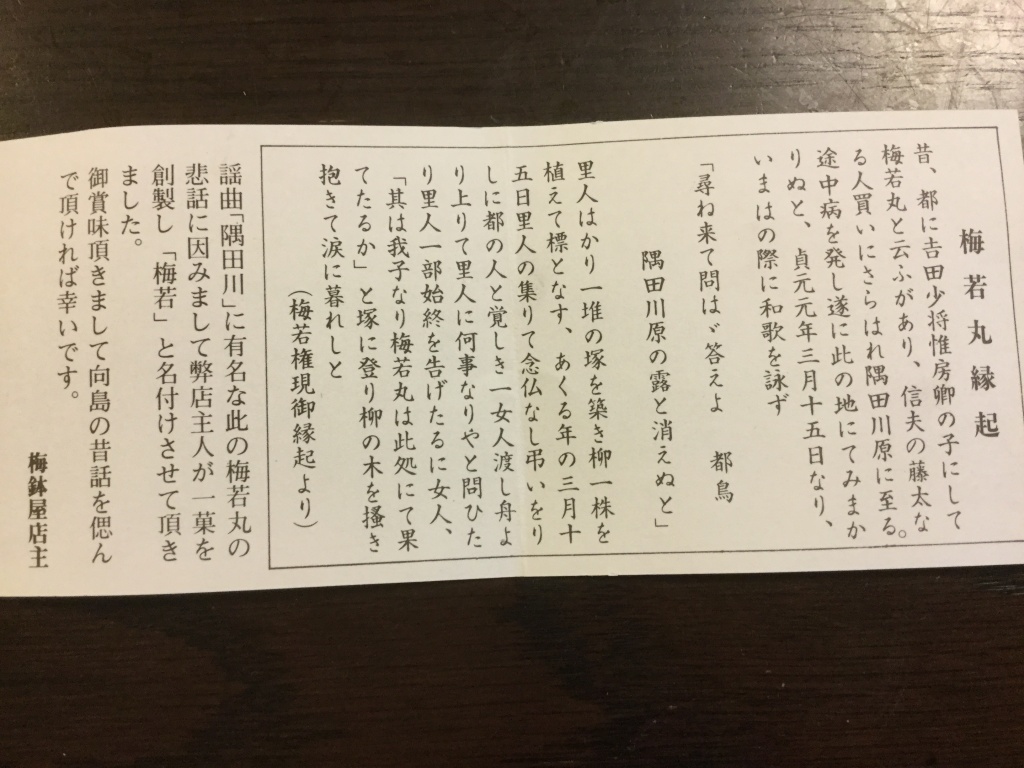 梅若丸縁起
昔、都に吉田少将惟房卿の子にして
梅若丸と云ふがあり、信夫の藤太な
る人買いにさらはれ隅田川原に至る。
途中病を発し遂に此の地にてみまか
りぬと、貞元元年三月十五日なり、
いまはの際に和歌を詠ず
「尋ね来て問はゞ答えよ　都鳥
隅田川原の露と消えぬと」
里人はかり一堆の塚を築き柳一株を
植えて標となす、あくる年の三月十
五日里人の集りて念仏なし弔いをり
しに都の人と覚しき一女人渡し舟よ
り上りて里人に何事なりやと問ひた
り里人一部始終を告げたるに女人、
「其は我子なり梅若丸は此処にて果
てたるか」と塚に登り柳の木を掻き
抱きて涙に暮れしと
（梅若権現御縁起より）
謡曲「隅田川」に有名な此の梅若丸の
悲話に因みまして弊店主人が一菓を
創製し「梅若」と名付けさせて頂き
ました。
御賞味頂きまして向島の昔話を偲ん
で頂ければ幸いです。
梅鉢屋店主